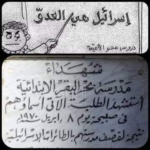 إسرائيل هي العدو
دروس محو الأمية
شهداء
مدرسة بحر البقر الابتدائية
استشهد الطلبة الآتى أسماؤهم
فى صبيحة يوم ٨ ابريل ١٩٧٠
نتيجة لقصف مدرستهم بالطائرات الإسرائيلية